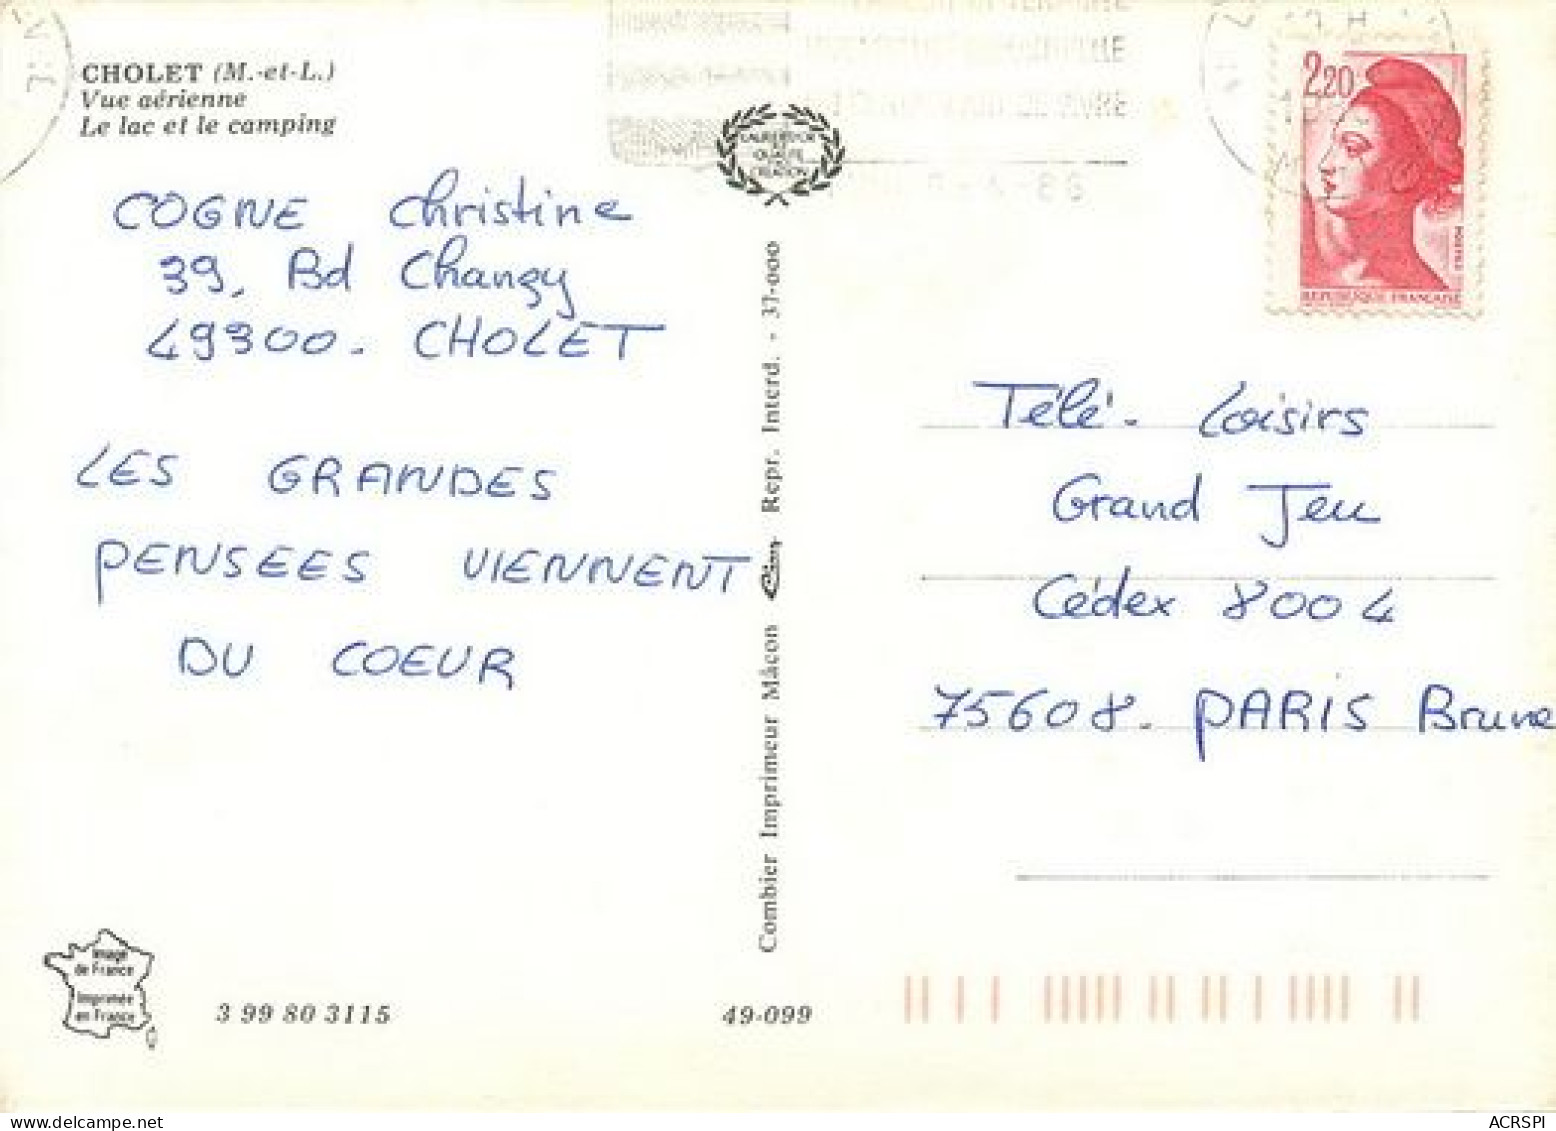 CHOLET (M.-et-L.)
Vue aérienne
Le lac et le camping
COGNE Christine
39, Bd Changy
49300. CHOLET
LES GRANDES
PENSEES VIENNENT
DU COEUR
Image
de France
Imprimée
en France
3 99 80 3115
49-099
LAURIERS D'OR
QUALITÉ
CREATION
Combier Imprimeur Mâcon Cim Repr. Interd. - 37-000
2,20
POSTES
REPUBLIQUE FRANÇAISE
Télé. Loisirs
Grand Jeu
Cédex 8004
75608. PARIS Brune
ACRSPI